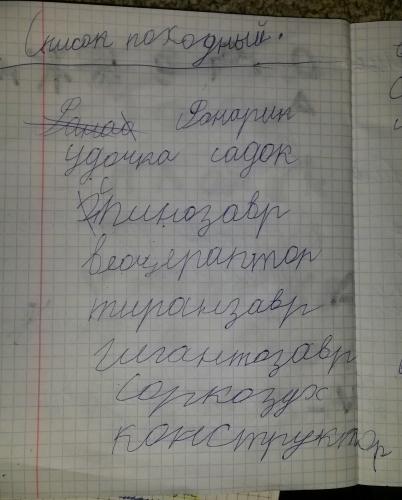 Список походный.
Фонарик
удочка садок
спинозавр
веоцераптор
тиранзавр
гигантозавр
Соркозух
конструктор